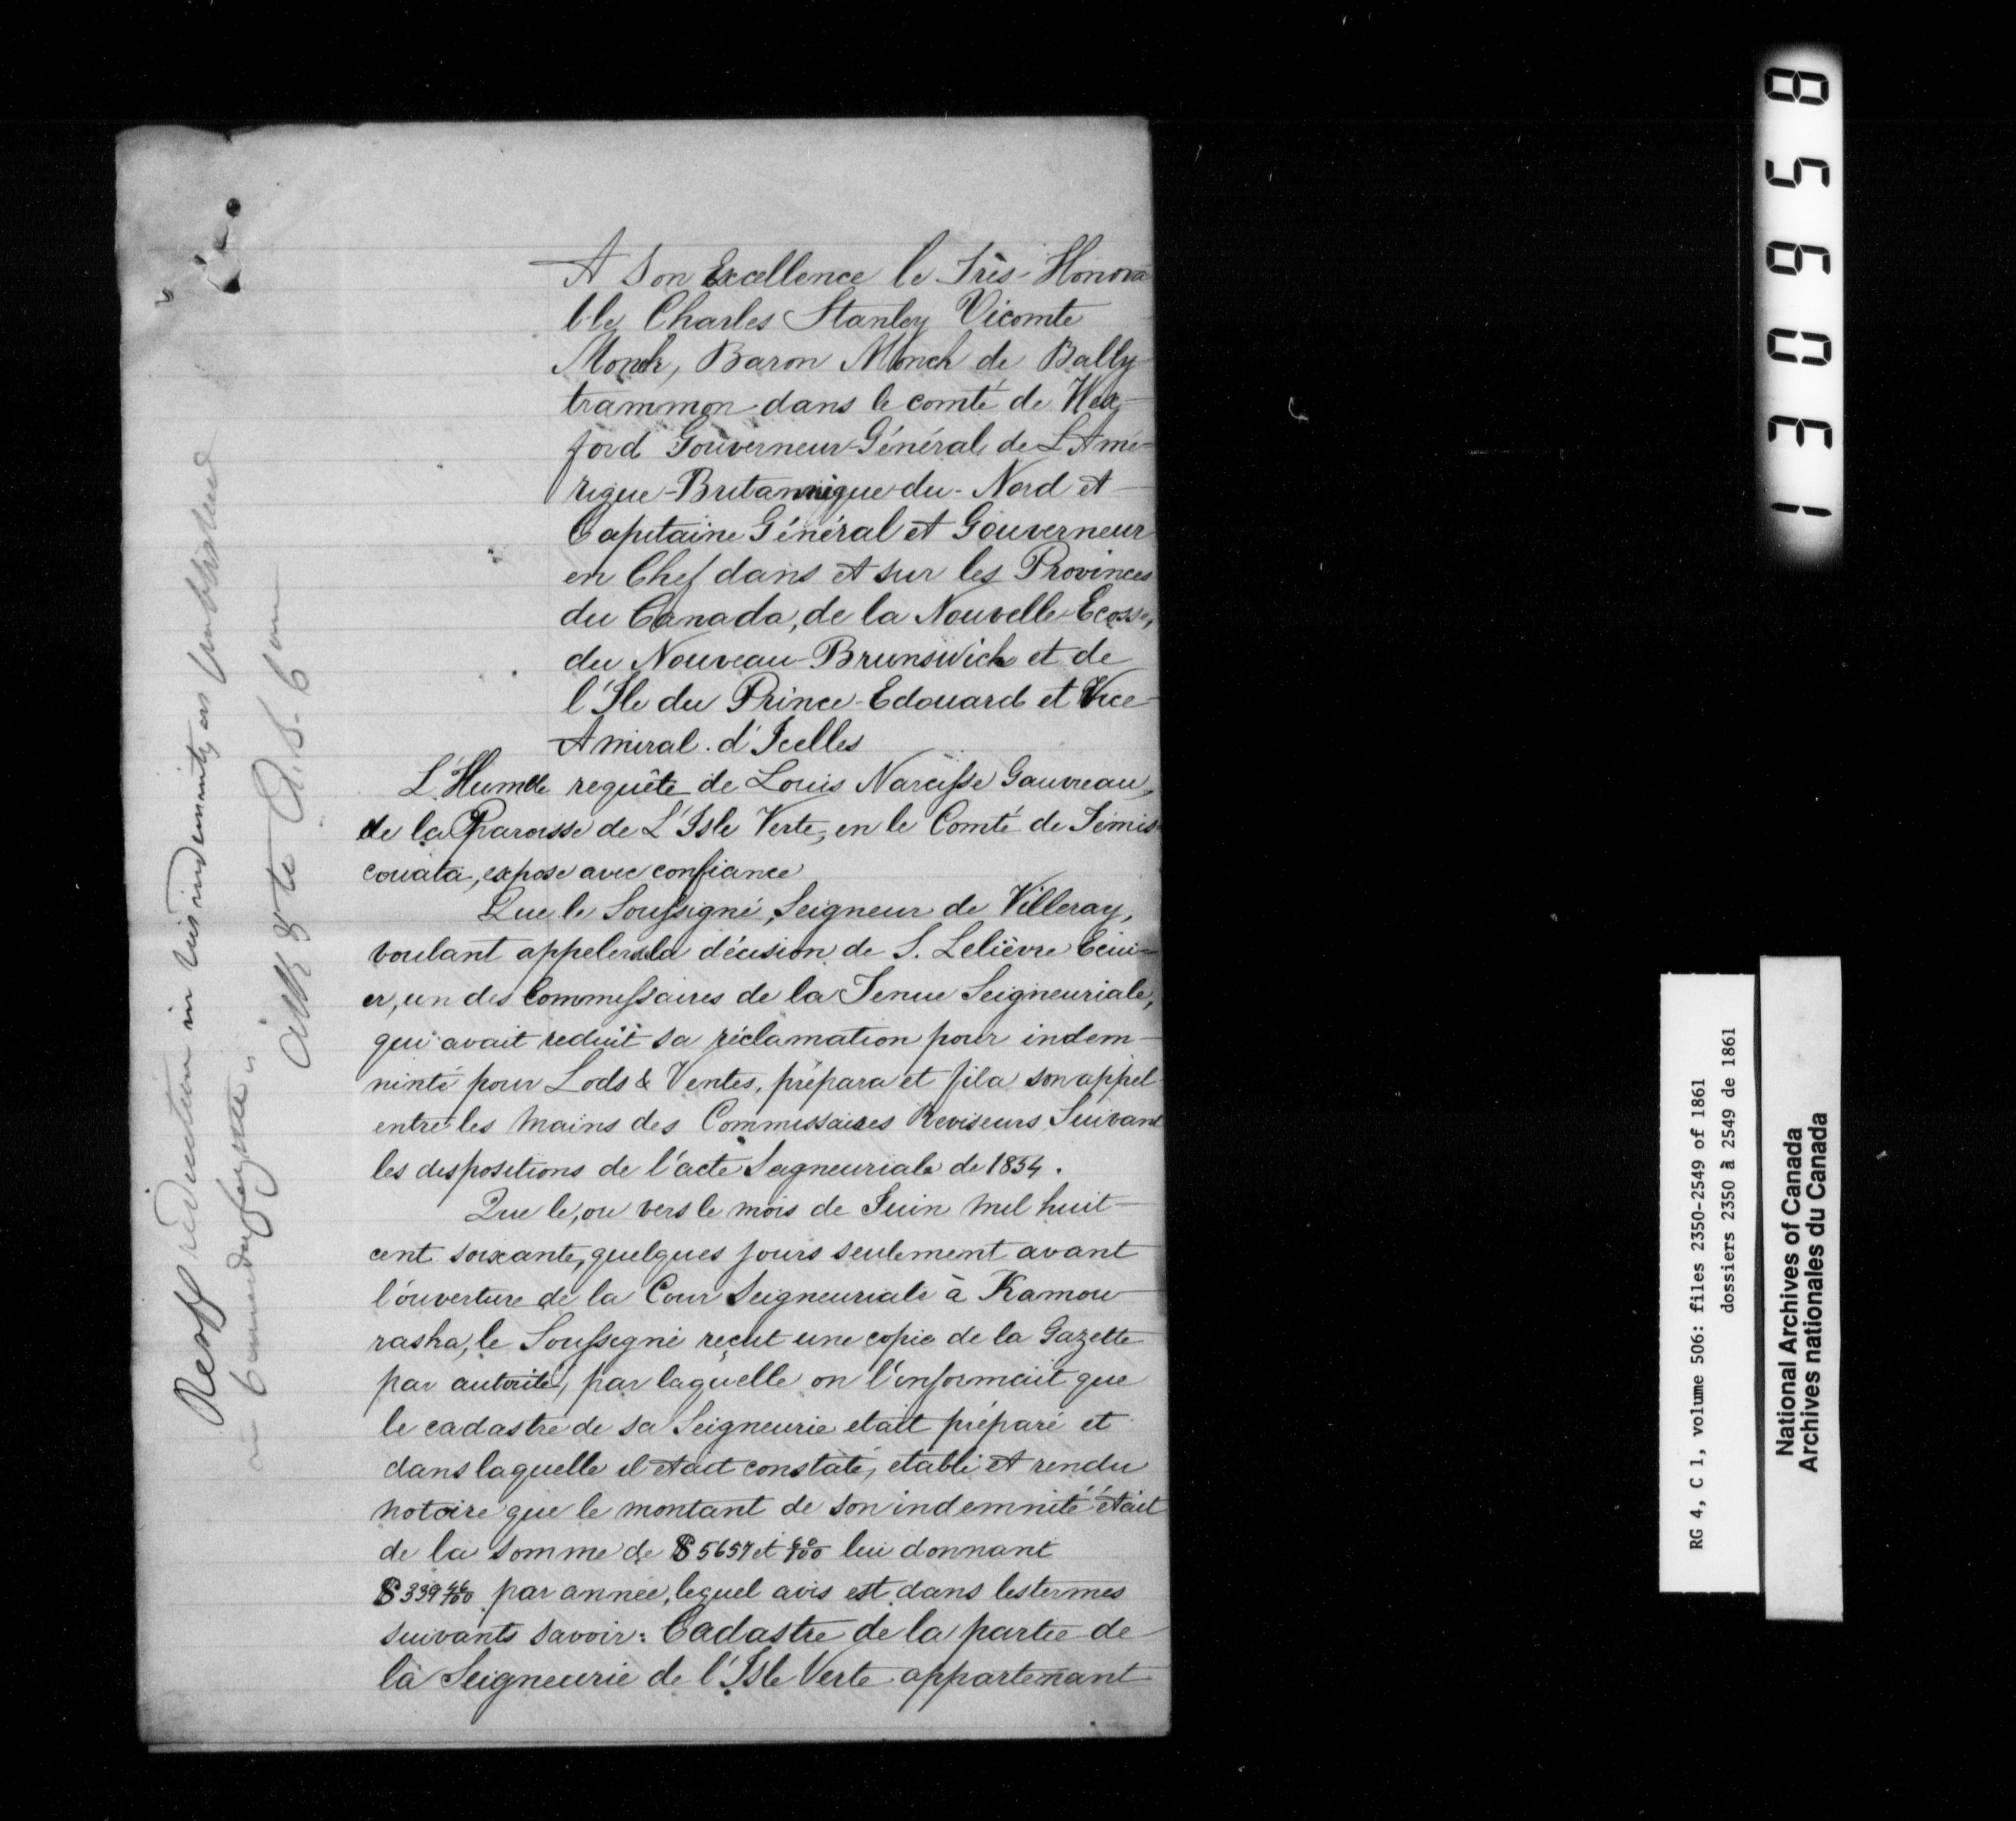 A Son Excellence le Très-Honora
ble Charles Stanley Vicomte
Monck, Baron Monck de Bally-
trammon dans le comté de Wex-
ford Gouverneur-Général de L'Amé-
rique-Britannique-du-Nord et
Capitaine Général et Gouverneur
en Chef dans et sur les Provinces
du Canada, de la Nouvelle-Ecosse,
du Nouveau-Brunswick et de
l'Ile du Prince-Edouard et Vice-
Amiral d'Icelles
L'Humble requête de Louis Narcisse Gauvreau,
de la Paroisse de L'Isle Verte, en le Comté de Témis
couata, expose avec confiance
Que le Soussigné, Seigneur de Villeray,
voulant appeler de la décision de S. Lelièvre Ecui-
er, un des Commissaires de la Tenue Seigneuriale,
qui avait reduit sa réclamation pour indem-
ninté pour Lods & Ventes, prépara et fila son appel
entre les mains des Commissaires Reviseurs Suivant
les dispositions de l'acte Seigneuriale de 1854.
Que le, ou vers le mois de Juin mil huit-
cent soixante, quelques jours seulement avant
l'ouverture de la Cour Seigneuriale à Kamou-
raska, le Soussigné reçut une copie de la Gazette
par autorité, par laquelle on l'informait que
le cadastre de sa Seigneurie etait préparé et
dans laquelle il etait constaté, etabli et rendu
notoire que le montant de son indemnité était
de la somme de $5657 et 60/100 lui donnant
$339 46/100 par année, lequel avis est dans les termes
suivants savoir: Cadastre de la partie de
la Seigneurie de l'Isle Verte appartenant
reduction in his indemnity as
130958
RG 4, C 1, volume 506: files 2350-2549 of 1861
dossiers 2350 à 2549 de 1861
National Archives of Canada
Archives nationales du Canada